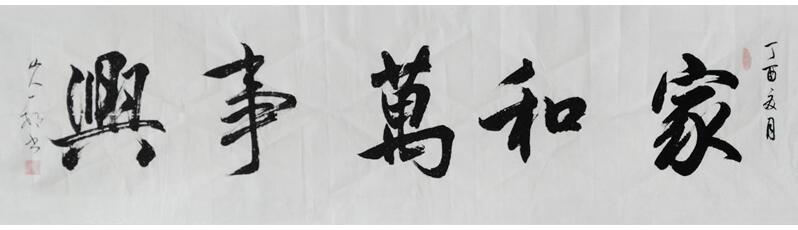 丁酉夏月
家和萬事興